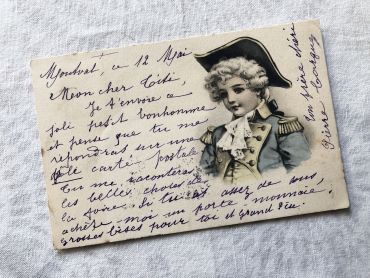 Montvert, ce 12 Mai
Mon cher Titi,
Je t'envoie ce
joli petit bonhomme
et pense que tu me
répondras sur une
belle carte postale
Tu me raconteras
les belles choses de
la foire. Si tu as assez de sous,
achète-moi un porte-monnaie.
grosses bises pour toi et grand
Ton frère chéri
Pierre